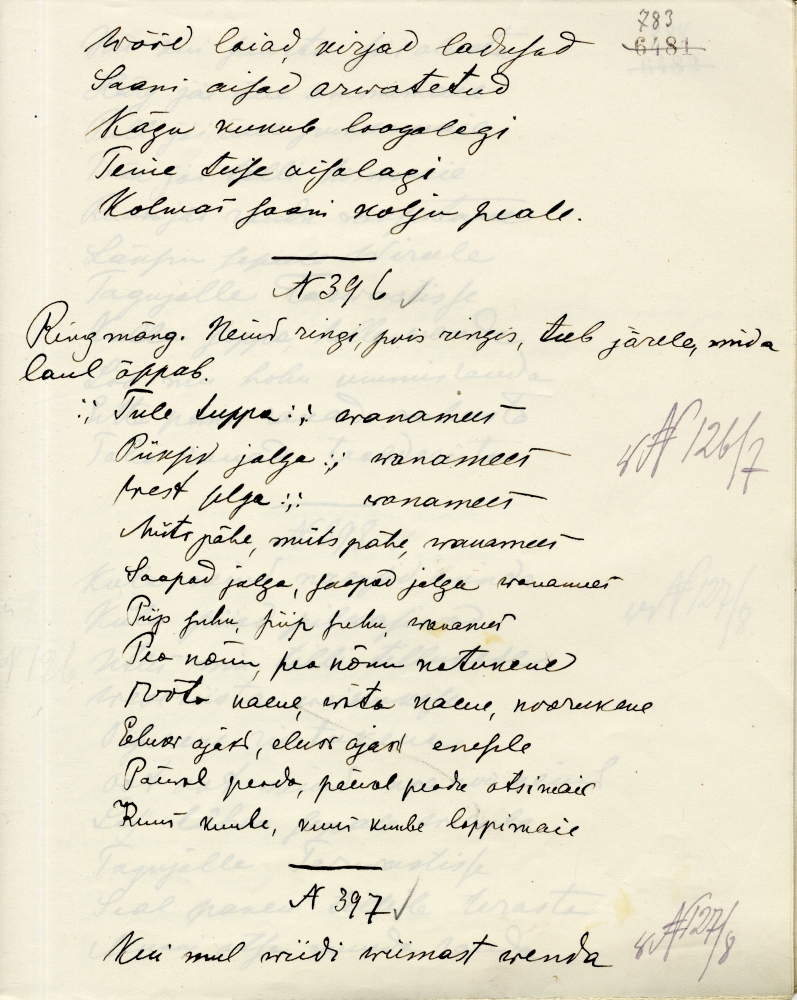 783
6481
Wööd laiad, kirjad ladusad
Saani aisad arwatetud
Kägu kukub loogalegi
Teine teise aisalagi
Kolmas saani kolju peale.
N 396
Ringmäng. Neiud ringi, pois ringis, teeb järele, mida
laul õppab.
:,: Tule tuppa :,: wanamees
Püksid jalga :,: wanamees
West selga :,: wanamees
Müts pähe, müts pähe, wanamees
Saapad jalga, saapad jalga wanamees
Piip suhu, piip suhu, wanamees
Pea nõuu, pea nõuu natukene
Wõta naene, wõta naene, noorukene
Eluor ajast, eluor ajast enesele
Päewal peada, päewal peada otsimaie
Kuus kuube, kuus kuube lappimaie
N 397
Kui mul wiidi wiimast wenda
N 126/7
N 127/8